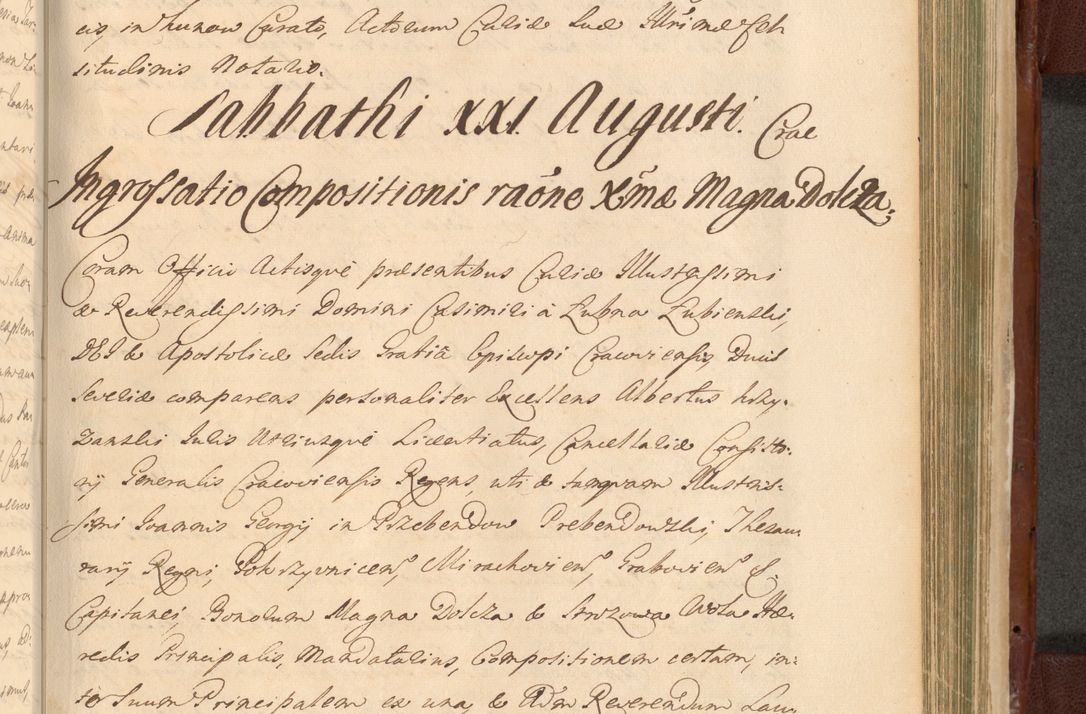 cis, in hunow Curato, Actorum Curiæ Suæ Illrimæ Cel
situdinis Notario.
Sabbathi XXI. Augusti.
Crae
Ingrossatio Compositionis raõne Xmæ Magna Dolcza.
Coram Officio Actisquè præsentibus Curiæ Illustrissimi
& Reverendissimi Domini Casimiri à Łubna Łubienski,
DEI & Apostolicæ Sedis Gratiâ Episcopi Cracoviensis, Ducis
Severiæ comparens personaliter Excellens Albertus
zanski Iuris Utriusquè Licentiatus, Cancellariæ Consisto:
rij Generalis Cracoviensis Regens, uti & tanquam Illustris:
simi Ioannis Georgij in Przebendow Prebendowski, Thesau:
rarij Regni, Tokrzyvnicen, Mirachovien, Grabovien &.
Capitanei, Bonorum Magna Dolcza & Wola Hæ:
redis Principalis, Mandatarius, Compositionem certam, in:
ter Suum Principalem ex una, & Adm Reverendum Lau: